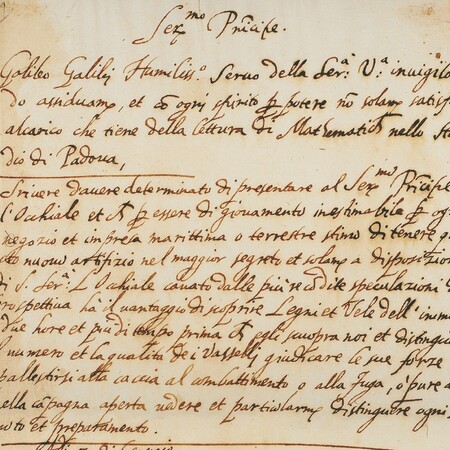 Ser.mo Prĩcipe.
Galileo Galilei Humiliss.o Servo della Ser.a V.a invigilã
do assiduam.e, et cõ ogni spirito p potere nõ solam.e satisf
alcarico che tiene della lettura di Mathematich nello Stu
dio di Padova,
Scrivere davere determinato di presentare al Ser.mo Prĩcipe
l'Occhiale et p essere di giovamento inestimabile p ogni
negozio et impresa marittima o terrestre stimo di tenere q
sto nuovo artifizio nel maggior segreto et solam.e a disposizione
di S. Ser.a L'Occhiale cavato dalle più recõdite speculazioni di
prospettiva ha il vantaggio di scoprire Legni et Vele dell'inimi
due hore et più di tempo prima ch egli scuopra noi et distinguẽ
il numero et la qualità de i Vasselli giudicare le sue forze
pallestirsi alla caccia al combattimento o alla fuga, o pure a
nella cãpagna aperta vedere et particolarm.e distinguere ogni
moto et preparamento.